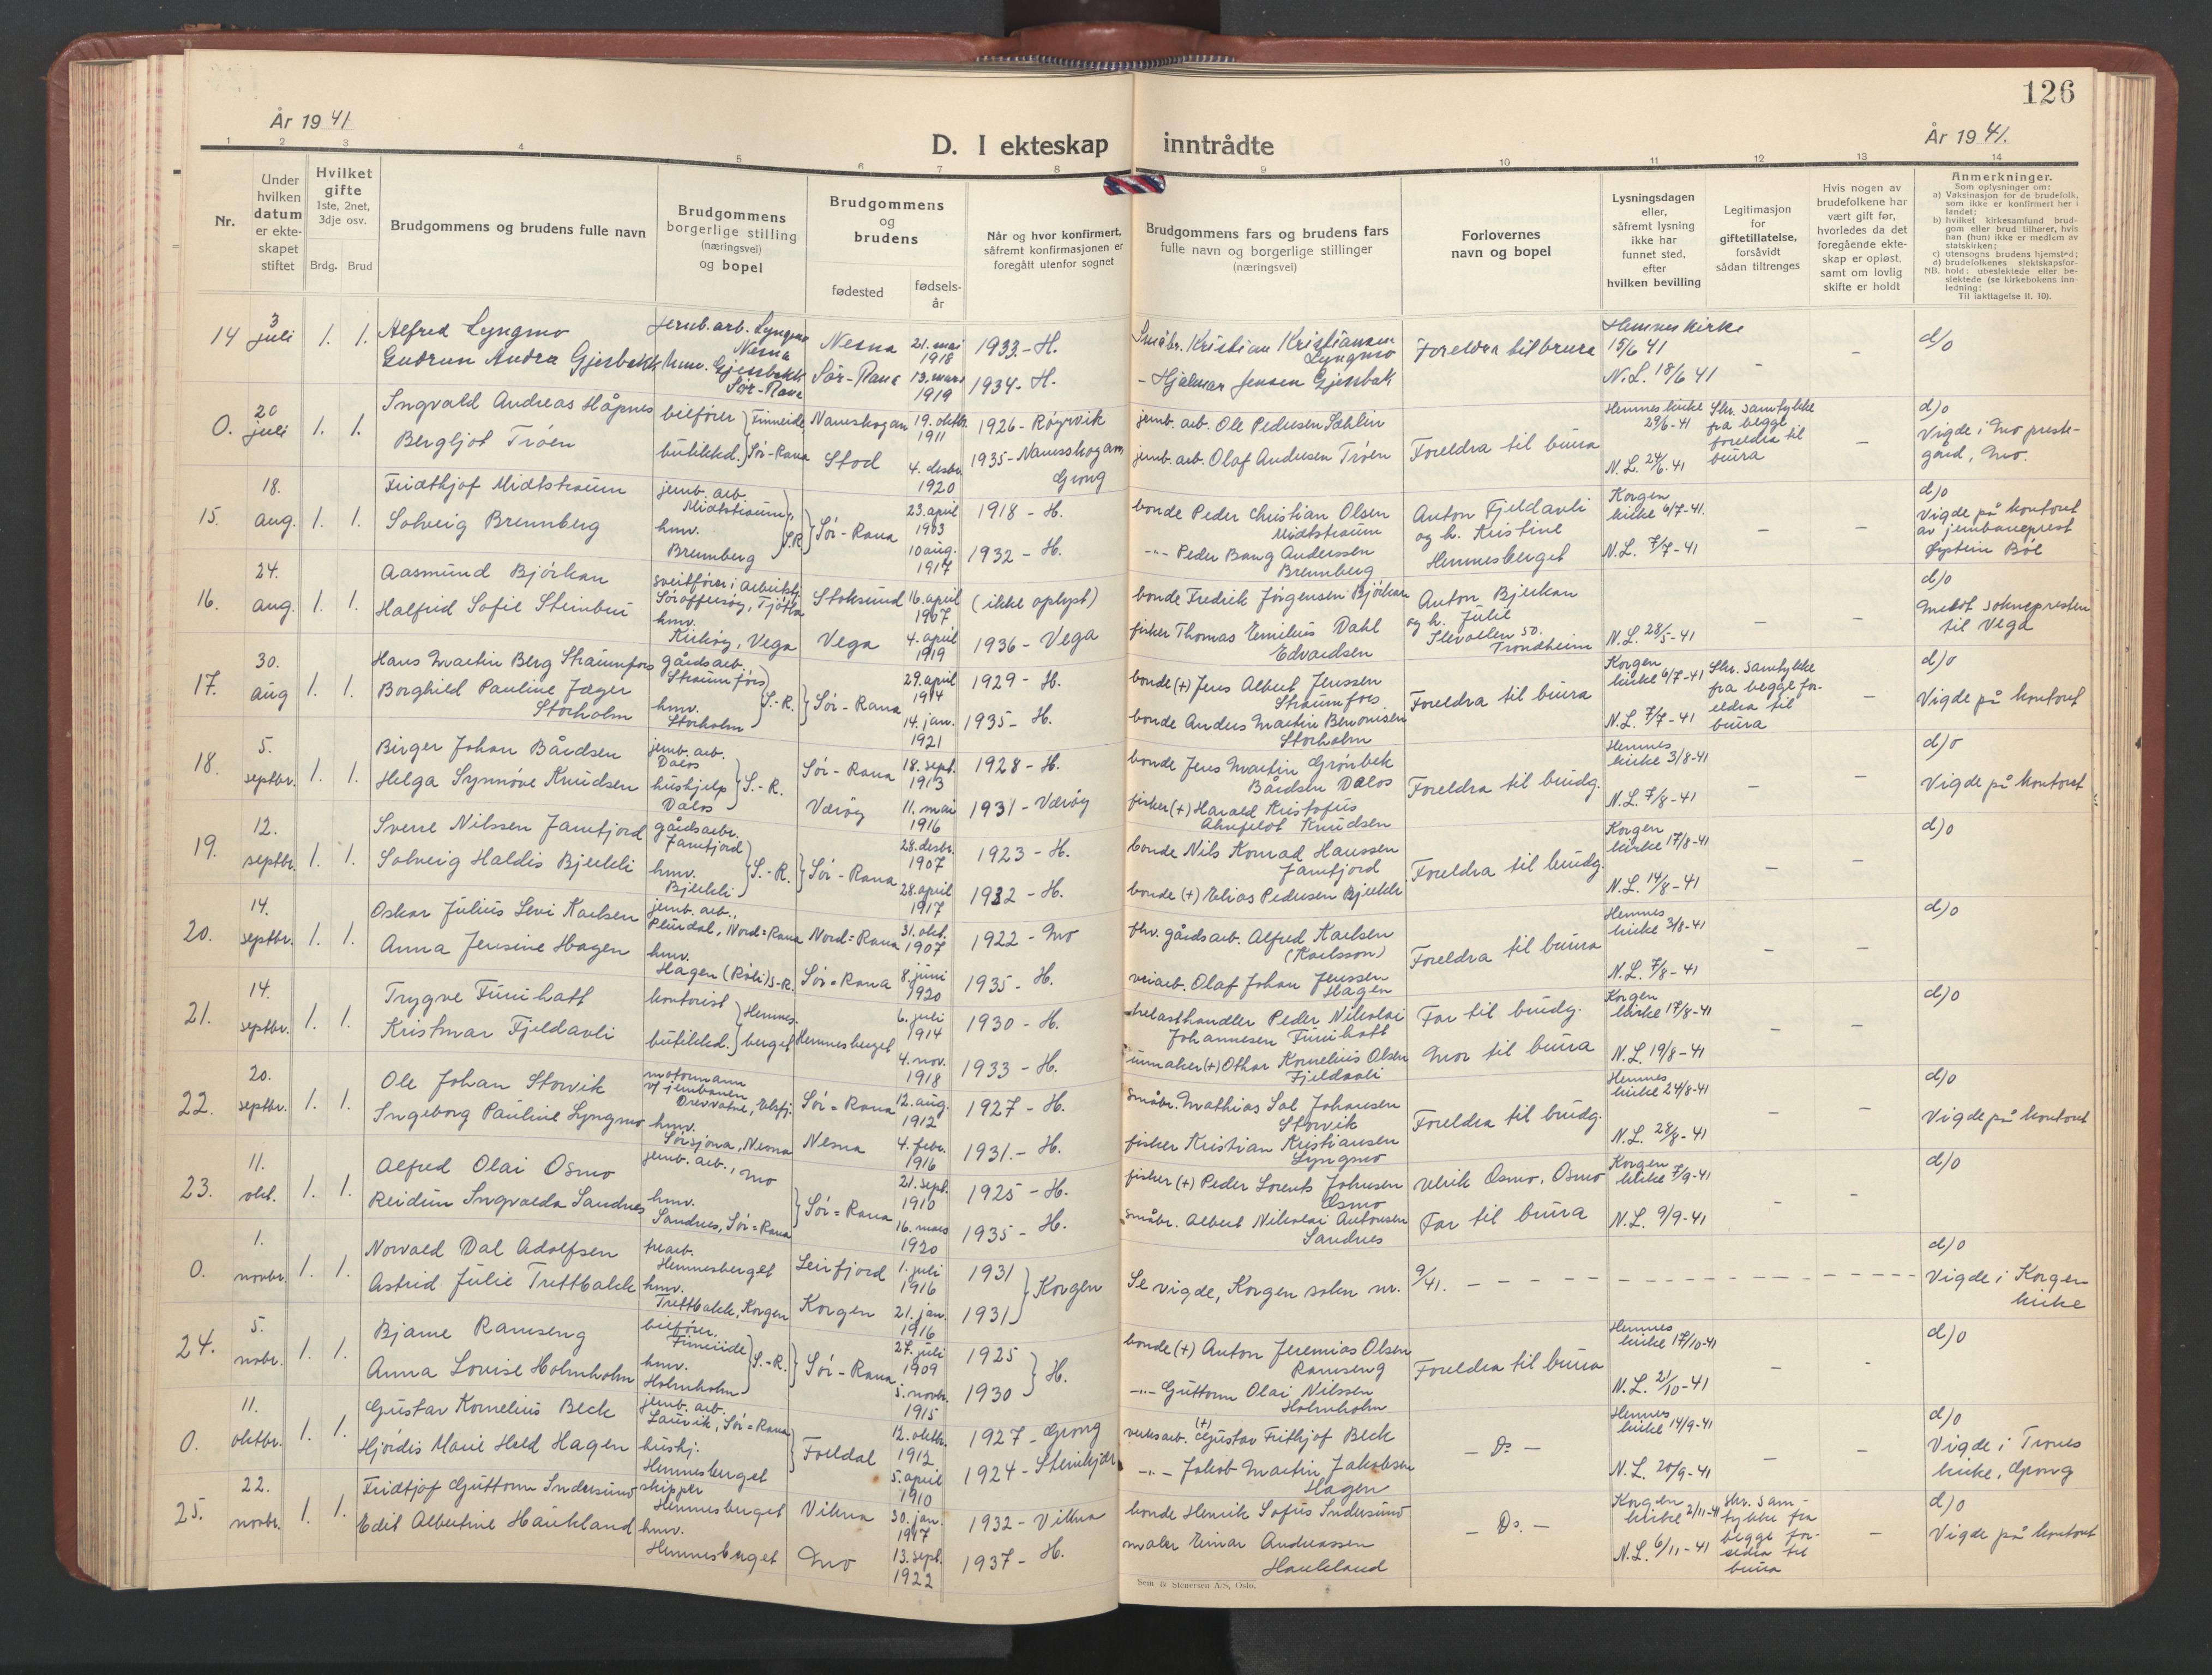 126
År 1941
D. I ekteskap inntrådte
År 1941.
1 2 3 4 5 6 7 8 9 10 11 12 13 14
Nr.
Under hvilken datum er ekteskapet stiftet
Hvilket gifte 1ste, 2net, 3dje osv.
Brdg. Brud
Brudgommens og brudens fulle navn
Brudgommens borgerlige stilling (næringsvei) og bopel
Brudgommens og brudens
fødested
fødselsår
Når og hvor konfirmert, såfremt konfirmasjonen er foregått utenfor sognet
Brudgommens fars og brudens fars fulle navn og borgerlige stillinger (næringsvei)
Forlovernes navn og bopel
Lysningsdagen eller, såfremt lysning ikke har funnet sted, efter hvilken bevilling
Legitimasjon for giftetillatelse, forsåvidt sådan tiltrenges
Hvis nogen av brudefolkene har vært gift før, hvorledes da det foregående ekteskap er opløst, samt om lovlig skifte er holdt
Anmerkninger.
Som oplysninger om:
a) Vaksinasjon for de brudefolk, som ikke er konfirmert her i landet;
b) hvilket kirkesamfund brudgom eller brud tilhører, hvis han (hun) ikke er medlem av statskirken;
c) utensogns brudens hjemsted;
d) brudefolkenes slektskapsforhold: ubeslektede eller beslektede (se kirkebokens innledning:
NB.
Til iakttagelse II. 10).
14 3 juli 1. 1. Alfred Lyngmo jernb.arb. Lyngmo Nesna Nesna 21. mai 1918 1933 - H. Småbr. Kristian Kristiansen Lyngmo Foreldra til brura Hemnes kirke 15/6 41 d/o
Gudrun Andra Gjesbakk hmv. Gjesbakk Sør-Rana Sør-Rana 13. mars 1919 1934 - H. - Hjalmar Jensen Gjesbak N.L. 18/6 41
0. 20 juli 1. 1. Ingvald Andreas Håpnes bilfører Finneide, Namsskogan 19. oktbr. 1911 1926 - Røyrvik jernb. arb. Ole Pedersen Sæhlin Foreldra til brura Hemnes kirke 29/6-41 Skr. samtykke fra begge foreldra til brura d/o
Bergljot Trøen butikkd. Sør-Rana Stod 4. desbr. 1920 1935 - Namsskogan, Grong jernb. arb. Olaf Andersen Trøen N.L. 24/6. 41 Vigde i Mo prestegard, Mo.
15. 18. aug. 1. 1. Fridthjof Midtstraum jernb. arb. Midtstraum, S.R. Sør-Rana 23. april 1903 1918 - H. bonde Peder Christian Olsen Midtstraum Anton Fjeldavli og h. Kristine Hemnesberget Korgen kirke 6/7-41. d/o
Solveig Brennberg hmv. Brennberg 10 aug. 1917 1932 - H. -"- Peder Bang Anderssen Brennberg N.L. 7/7-41 Vigde på kontoret av jernbaneprest Øystein Bøe
16. 24. aug. 1. 1. Aasmund Bjørkan Stoksund 16. april 1907 (ikke oplyst) bonde Fredrik Jørgensen Bjørkan Anton Bjerkan og h. Julie d/o
Halfrid Sofie Steinbru hmv. Kirkøy, Vega Vega 4. april 1919 1936 - Vega fisker Thomas Emilius Dahl Edvardsen Trondheim N.L. 28/5-41 Meldt soknepresten til Vega
17. 30. aug 1. 1. Hans Martin Berg Straumfors gårdsarb. Straumfors S.-R. Sør-Rana 29. april 1914 1929 - H. bonde (+) Jens Albert Jenssen Straumfors Foreldra til brura Korgen kirke 6/7-41 Skr. samtykke fra begge foreldra til brura d/o
Borghild Pauline Jæger Storholm hmv. Storholm 14. jan. 1921 1935 - H. bonde Anders Martin Benonisen Storholm N.L. 7/7-41 Vigde på kontoret
18. 5. septbr. 1. 1. Birger Johan Bårdsen jernb. arb. Dalos S.-R. Sør-Rana 18. sept. 1913 1928 - H. bonde Jens Martin Grønbek Bårdsen Dalos Foreldra til brudg. Hemnes kirke 3/8-41 d/o
Helga Synnøve Knudsen hushjelp Dalos Værøy 11. mai 1916 1931 - Værøy fisker (+) Harald Kristofus Ahnfeldt Knudsen N.L. 7/8-41 Vigde på kontoret
19. 12. septbr. 1. 1. Sverre Nilssen Jamtfjord gårdsarbr. Jamtfjord S.-R. Sør-Rana 28. desbr. 1907 1923 - H. bonde Nils Konrad Hanssen Jamtfjord Foreldra til brudg. Korgen kirke 17/8-41 d/o
Solveig Haldis Bjerkli hmv. Bjerkli 28. april 1917 1932 - H. bonde (+) Elias Pedersen Bjerkli N.L. 14/8-41
20. 14. septbr. 1. 1. Oskar Julius Levi Karlsen jernb. arb., Plurdal, Nord=Rana Nord=Rana 31. okt. 1907 1922 - Mo fhv. gårdsarb. Alfred Karlsen (Karlsson) Foreldra til brura Hemnes kirke 3/8-41 d/o
Anna Jensine Hagen hmv. Hagen (Røli) S-R. Sør=Rana 8. juni 1920 1935 - H. veiarb. Olaf Johan Jenssen Hagen N.L. 7/8-41
21. 14. septbr. 1. 1. Trygve Furuhatt kontorist Hemnesberget Hemnesberget 6. juli 1914 1930 - H. trelasthandler Peder Nikolai Johannesen Furuhatt Far til brudg. Korgen kirke 17/8-41 d/o
Kristmar Fjeldavli butikkd. 4. nov. 1918 1933 - H. urmaker (+) Othar Kornelius Olsen Fjeldavli Mor til brura N.L. 19/8-41
22. 20. septbr. 1. 1. Ole Johan Storvik motormann v/ jernbanen Drevvatne, Elsfj. Sør=Rana 12. aug. 1912 1927 - H. småbr. Mathias Sal Johansen Storvik Foreldra til brudg. Hemnes kirke 24/8-41 d/o
Ingeborg Pauline Lyngmo hmv. Sørsjona, Nesna Nesna 4. febr. 1916 1931. - H. fisker Kristian Kristiansen Lyngmo N.L. 28/8-41 Vigde på kontoret
23. 11. okt. 1. 1. Alfred Olai Osmo jernb. arb., Mo Sør=Rana 21. sept. 1910 1925 - H. fisker (+) Peder Lorents Johnsen Osmo Ulrik Osmo, Osmo Korgen kirke 7/9-41 d/o
Reidun Ingvalda Sandnes hmv. Sandnes, Sør=Rana 16. mars 1920 1935 - H. småbr. Albert Nikolai Antonsen Sandnes Far til brura N.L. 9/9-41
0. 1. novbr. 1. 1. Norvald Dal Adolfsen trearb. Hemnesberget Leirfjord 1. juli 1916 1931 Korgen Se vigde, Korgen sokn nr. 9/41. d/o
Astrid Julie Trettbakk hmv. Trettbakk, Korgen Korgen 21. jan. 1916 1931 Vigde i Korgen kirke
24. 5. nobr. 1. 1. Bjarne Ramseng bilfører. Finneide S.-R. Sør-Rana 27. juli 1909 1925 H. bonde (+) Anton Jeremias Olsen Ramseng Foreldra til brura Hemnes kirke 17/10-41 d/o
Anna Lovise Holmholm hmv. Holmholm 5. novbr. 1915 1930 -"- Guttorm Olai Nilssen Holmholm N.L. 21/10-41
0. 11. oktbr. 1. 1. Gustav Kornelius Beck jernb. arb. Laurik, Sør=Rana Foldal 12. oktbr. 1912 1927 - Grong verksarb. (+) Gustav Frithjof Beck - Do - Hemnes kirke 14/9-41 d/o
Hjørdis Marie Held Hagen hushj. Hemnesberget 5. april 1910 1924 - Steinkjær -"- Jakob Martin Jakobsen Hagen N.L. 20/9-41 Vigde i Trones kirke, Grong
25. 22. novbr. 1. 1. Fridtjof Guttorm Indresund skipper Hemnesberget Vikna 30. jan. 1917 1932 - Vikna bonde Henrik Sofus Indresund - Do. - Korgen kirke 2/11-41 skr. samtykke fra begge foreldra til brura d/o
Edit Albertine Haukland hmv. Hemnesberget Mo 13. sept. 1922 1937 - H. maler Einar Andreassen Haukland N.L. 6/11-41 Vigde på kontoret
Sem & Stenersen A/S, Oslo.